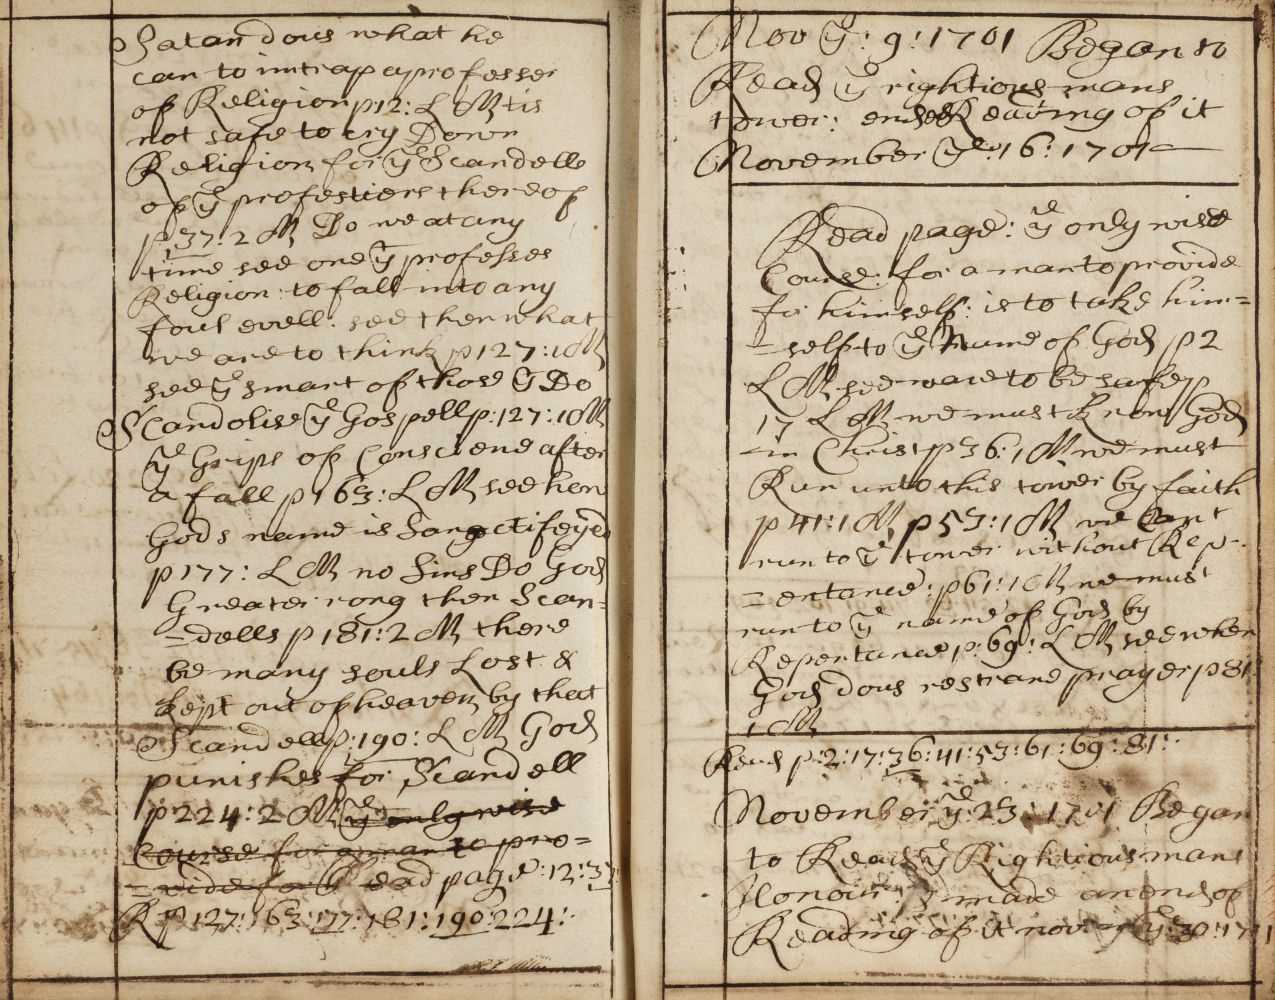 Satan dous what he
can to intrap a professer
of Religion p12: L M tis
not safe to cry Down
Religion for yͤ Scandells
of yͤ professiers thereof
p 37: 2 M Do we at any
time see one yͭ professes
Religion: to fall into any
foul evell: see then what
we are to think p 127: 1 M
see yͤ smart of those yͭ Do
Scandolise yͤ Gospell p: 127: 1 M
yͤ Grips of Consciene after
a fall p 163: L M see how
Gods name is Sanctifeyed
p 177: L M no Sins Do God
Greater rong then Scan=
=dells p 181: 2 M there
be many souls Lost &
kept out of heaven by that
Scandell p: 190: L M God
punishes for Scandell
p 224: 2 M yͤ only wise
Course for a man to pro=
=vide for Read page: 12: 37:
R p 127: 163: 177: 181: 190: 224:
Nov yͤ: 9: 1701 Began to
Read yͤ rightious mans
tower: ended Reading of it
November yͤ: 16: 1701
Read page: yͤ only wise
Course: for a man to provide
for himself: is to take him=
=self to yͤ Name of God p 2
L M see ware to be safe p
17 L M we must Know God
in Christ p 36: 1 M we must
Run unto this tower by faith
p 41: 1 M p 53: 1 M we Cant
run to yͤ tower without Rep=
=entance: p 61: 1 M we must
run to yͤ name of God by
Repentance p: 69: L M see when
God dous restrane prayer p 81
1 M
Read p: 2: 17: 36: 41: 53: 61: 69: 81:
November yͤ: 23: 1701 Began
to Read yͤ Rightious mans
Honour: I made an end of
Reading of it nov yͤ: 30: 1701